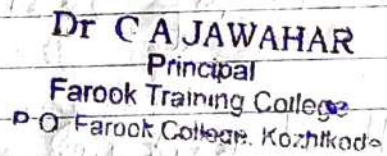 Dr C A JAWAHAR
Principal
Farook Training College
P O Farook College, Kozhikode